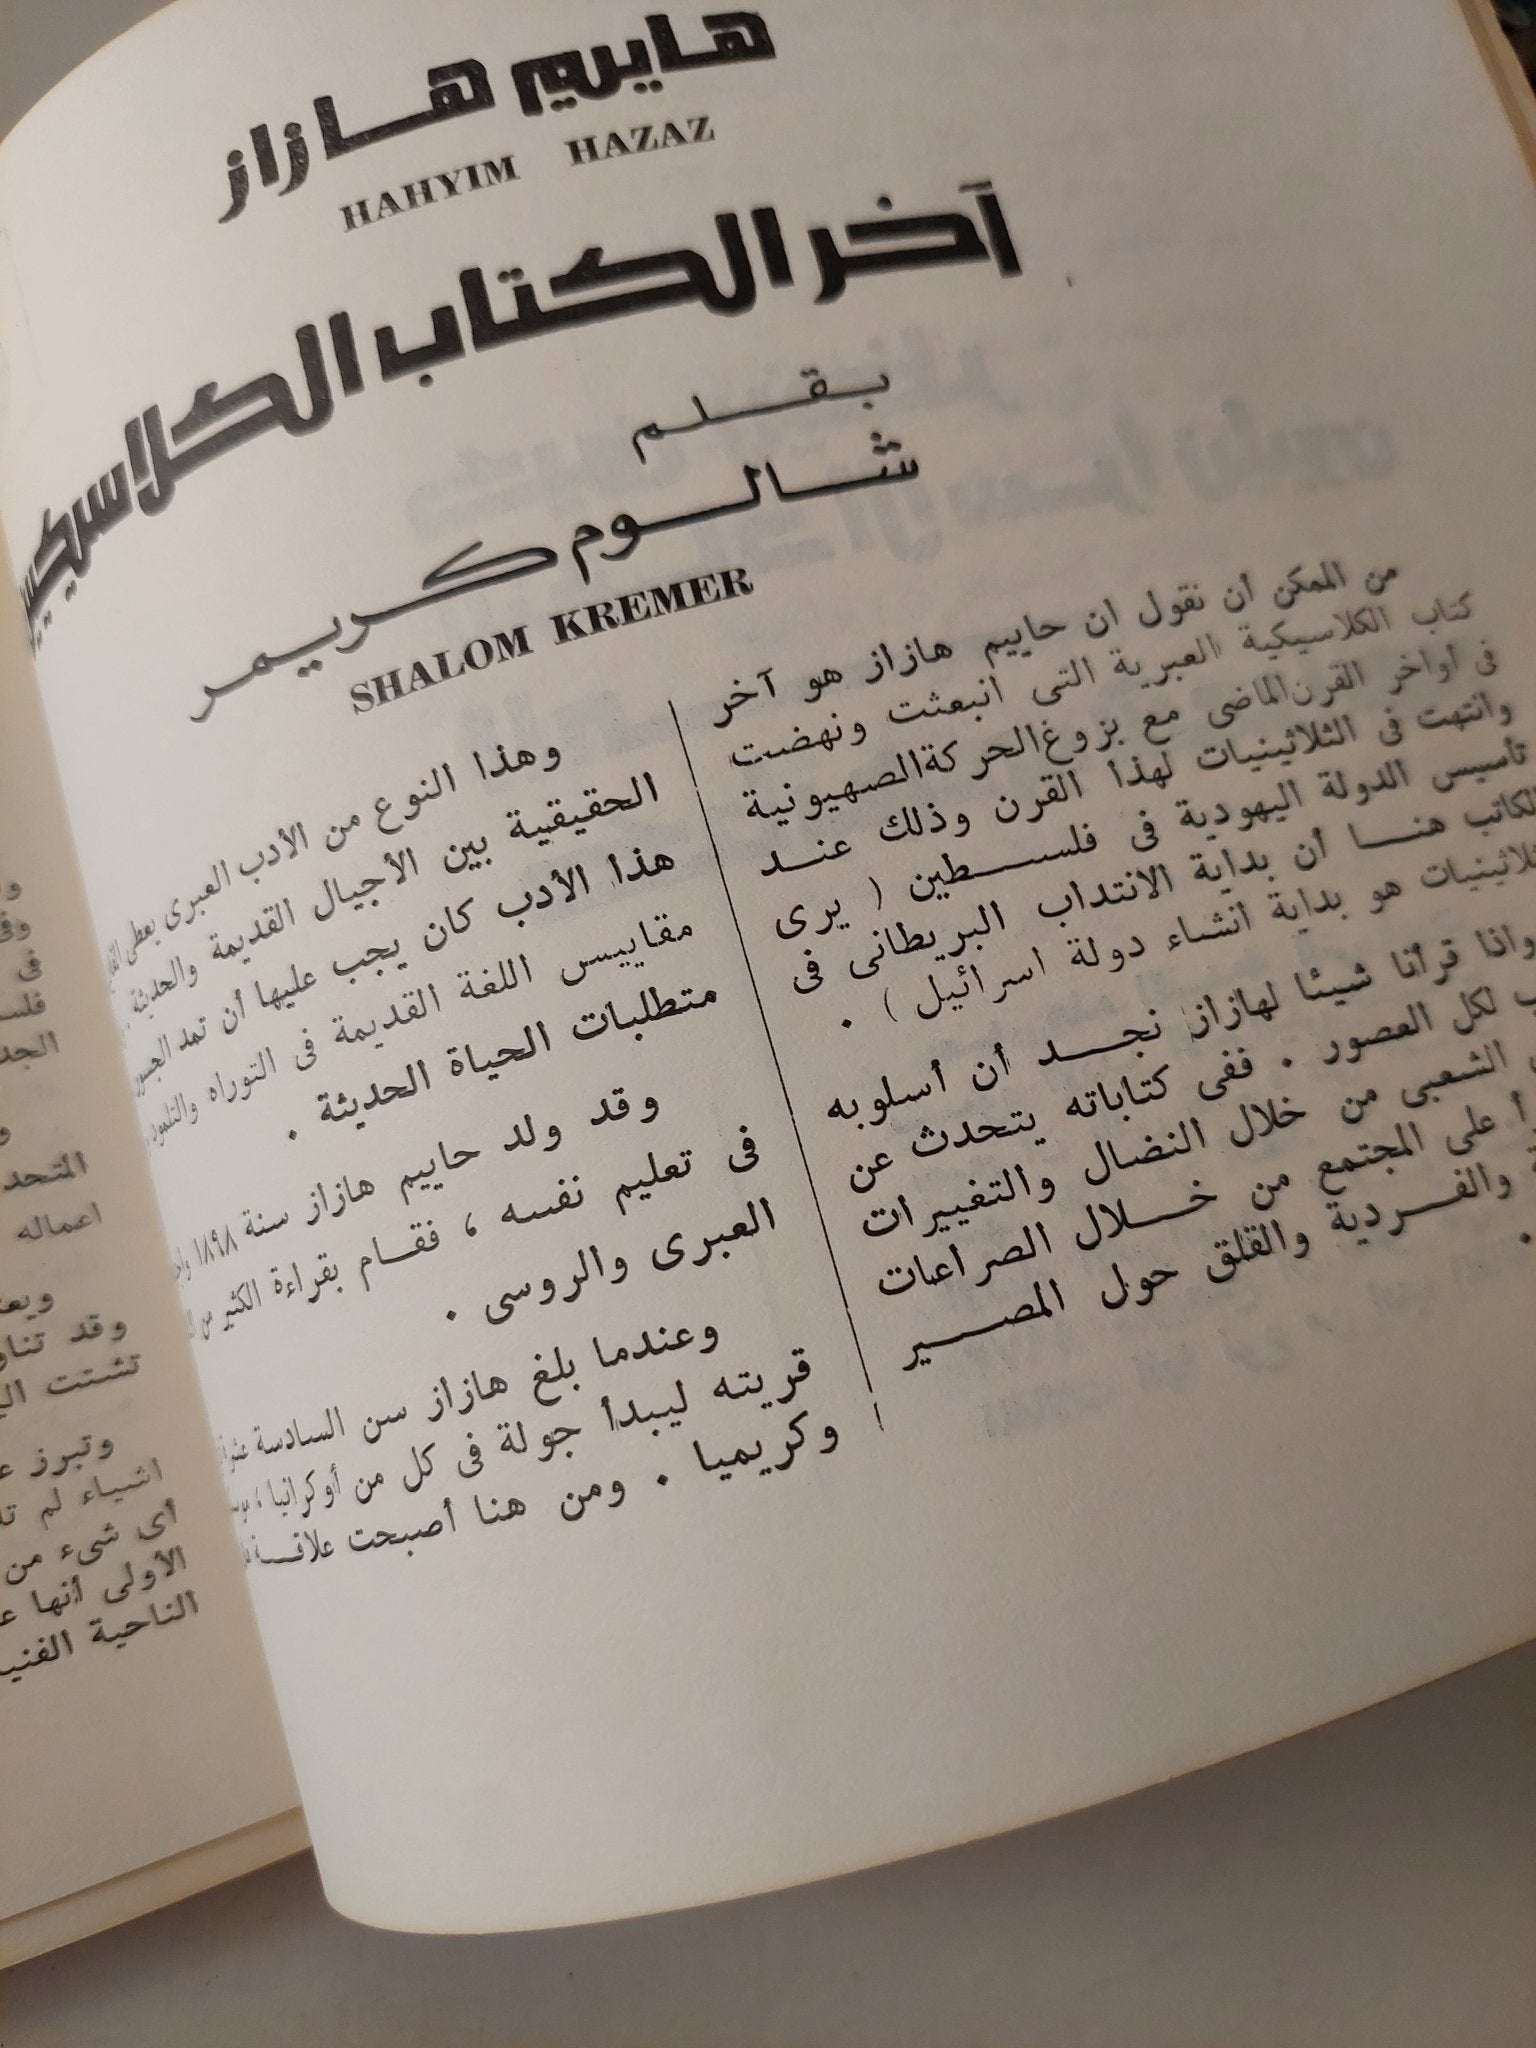 هايم هازاز
HAHYIM HAZAZ
آخر الكتاب
بقلم
شالوم كريمر
SHALOM KREMER
من الممكن أن نقول ان حاييم هازاز هو آخر
كتاب الكلاسيكية العبرية التى انبعثت ونهضت
فى أواخر القرن الماضى مع بزوغ الحركة الصهيونية
وانتهت فى الثلاثينيات لهذا القرن وذلك عند
تأسيس الدولة اليهودية فى فلسطين ( يرى
الكاتب هنا أن بداية الانتداب البريطانى فى
هو بداية انشاء دولة اسرائيل ) .
واذا قرأنا شيئا لهازاز نجد أن أسلوبه
لكل العصور . ففى كتاباته يتحدث عن
الشعبى من خلال النضال والتغييرات
على المجتمع من خلال الصراعات
والفردية والقلق حول المصير
.
وهذا النوع من الأدب العبرى يعطى
الحقيقية بين الأجيال القديمة والحديثة
هذا الأدب كان يجب عليها أن تمد
مقاييس اللغة القديمة فى التوراه والتلمود
متطلبات الحياة الحديثة .
وقد ولد حاييم هازاز سنة ١٨٩٨
فى تعليم نفسه ، فقام بقراءة الكثير من
العبرى والروسى .
وعندما بلغ هازاز سن السادسة
قريته ليبدأ جولة فى كل من أوكرانيا ،
وكريميا . ومن هنا أصبحت
فى
المتحد
اعماله
وقد
تشتت
وتبرز
اشياء لم
أى شىء من
الأولى أنها
الناحية